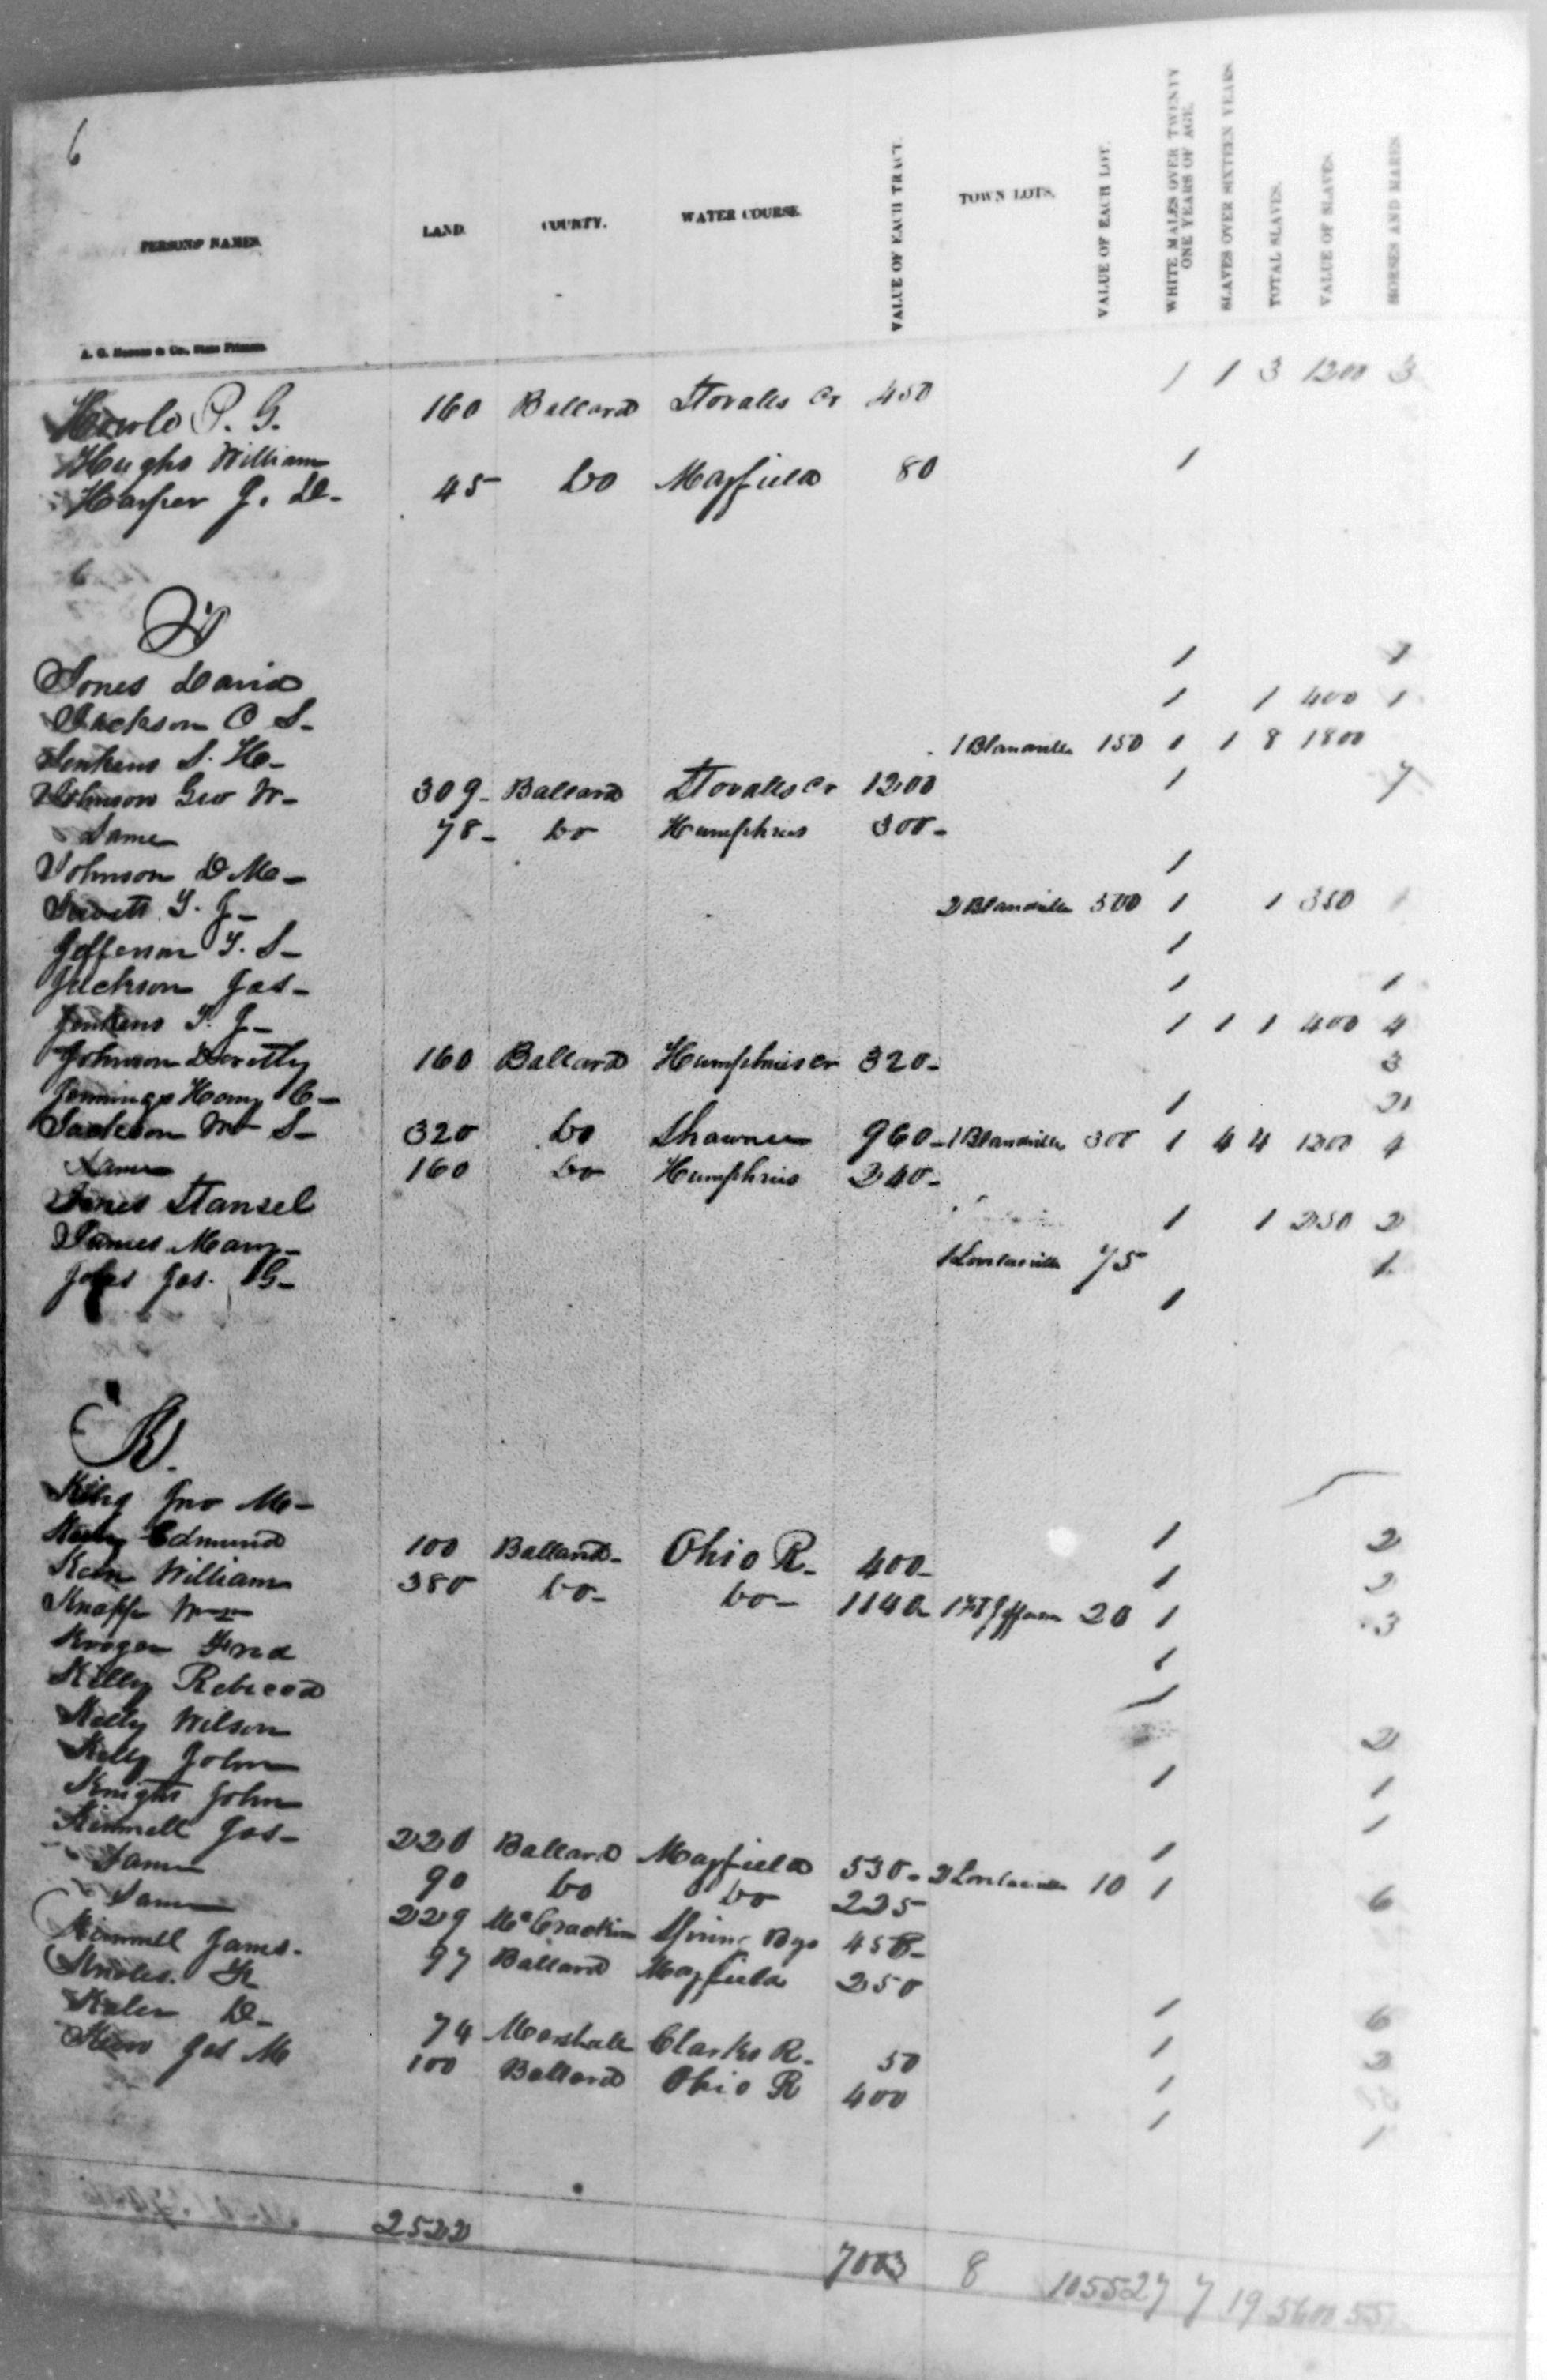 6
PERSONS' NAMES. LAND. COUNTY. WATER COURSE. VALUE OF EACH TRACT. TOWN LOTS. VALUE OF EACH LOT. WHITE MALES OVER TWENTY ONE YEARS OF AGE. SLAVES OVER SIXTEEN YEARS. TOTAL SLAVES. VALUE OF SLAVES. HORSES AND MARES.
A. G. Hodges & Co., State Printers.
P. G. 160 Ballard Stovalls Cr 450 1 1 3 1200 3
Hughs William 1
Harper J. D. 45 Do Mayfield 80
J
Jones David 1 1
Jackson C S. 1 1 400 1
Jenkins S. H. 1 Blandville 150 1 1 8 1800
Johnson Geo W. 309 Ballard Stovalls Cr 1200 1 7
Same 78 Do Humphries 300
Johnson D M. 1
T. J. 2 Blandville 500 1 1 350 1
Jefferson T. S. 1
Jackson Jas. 1 1
Jenkins T. J. 1 1 1 400 4
Johnson Dorothy 160 Ballard Humphries Cr 320 3
Jennings Henry C 1 2
Jackson Wm S. 320 Do Shawnee 960 1 Blandville 300 1 4 4 1200 4
Same 160 Do Humphries 240
Jones Stansel 1 1 250 2
James Mary 1 Lovelaceville 75 1
Jas. G. 1
K.
King Jno M.
Edmund 100 Ballard Ohio R. 400 1 2
William 380 Do Do 1140 1 Ft Jefferson 20 1 2
Knapp Wm 1 3
Kroger Fred
Kelly Rebecca
Kelly Wilson 2
Kelly John 1 1
Knight John 1
Kimmell Jas. 220 Ballard Mayfield 530 2 Lovelaceville 10 1
Same 90 Do Do 225 6
Same 229 McCracken Spring Byo 458
Kimmell James. 97 Ballard Mayfield 250
1 6
D. 74 Marshall Clarks R. 50 1 2
Jas M 100 Ballard Ohio R 400 1
1 1
2522 7003 8 1055 27 7 19 5600 55